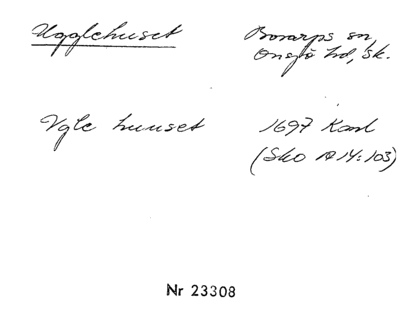 Ugglehuset
Bosarps sn,
Onsjö hd, Sk.
Vgle huuset
1697 Karl
(Sko A 14:103)
Nr 23308